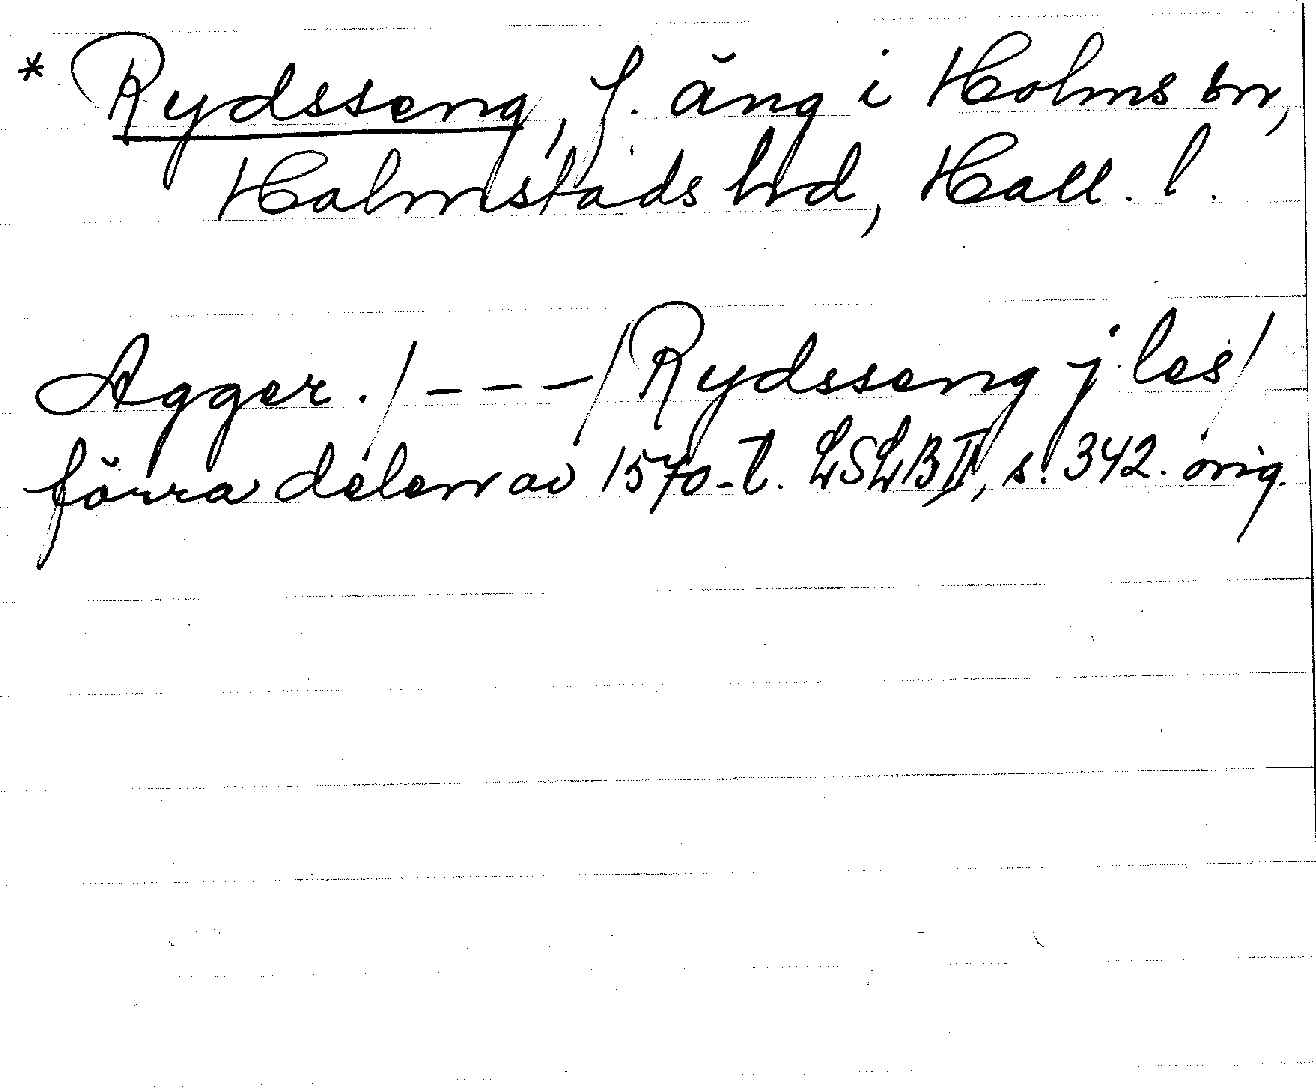 * Rydsseng, f. äng i Holms sn,
Halmstads hd, Hall. l.
Agger. /---/ Rydsseng j les/
förra delen av 1570-t. LSLB II, s. 342. orig.